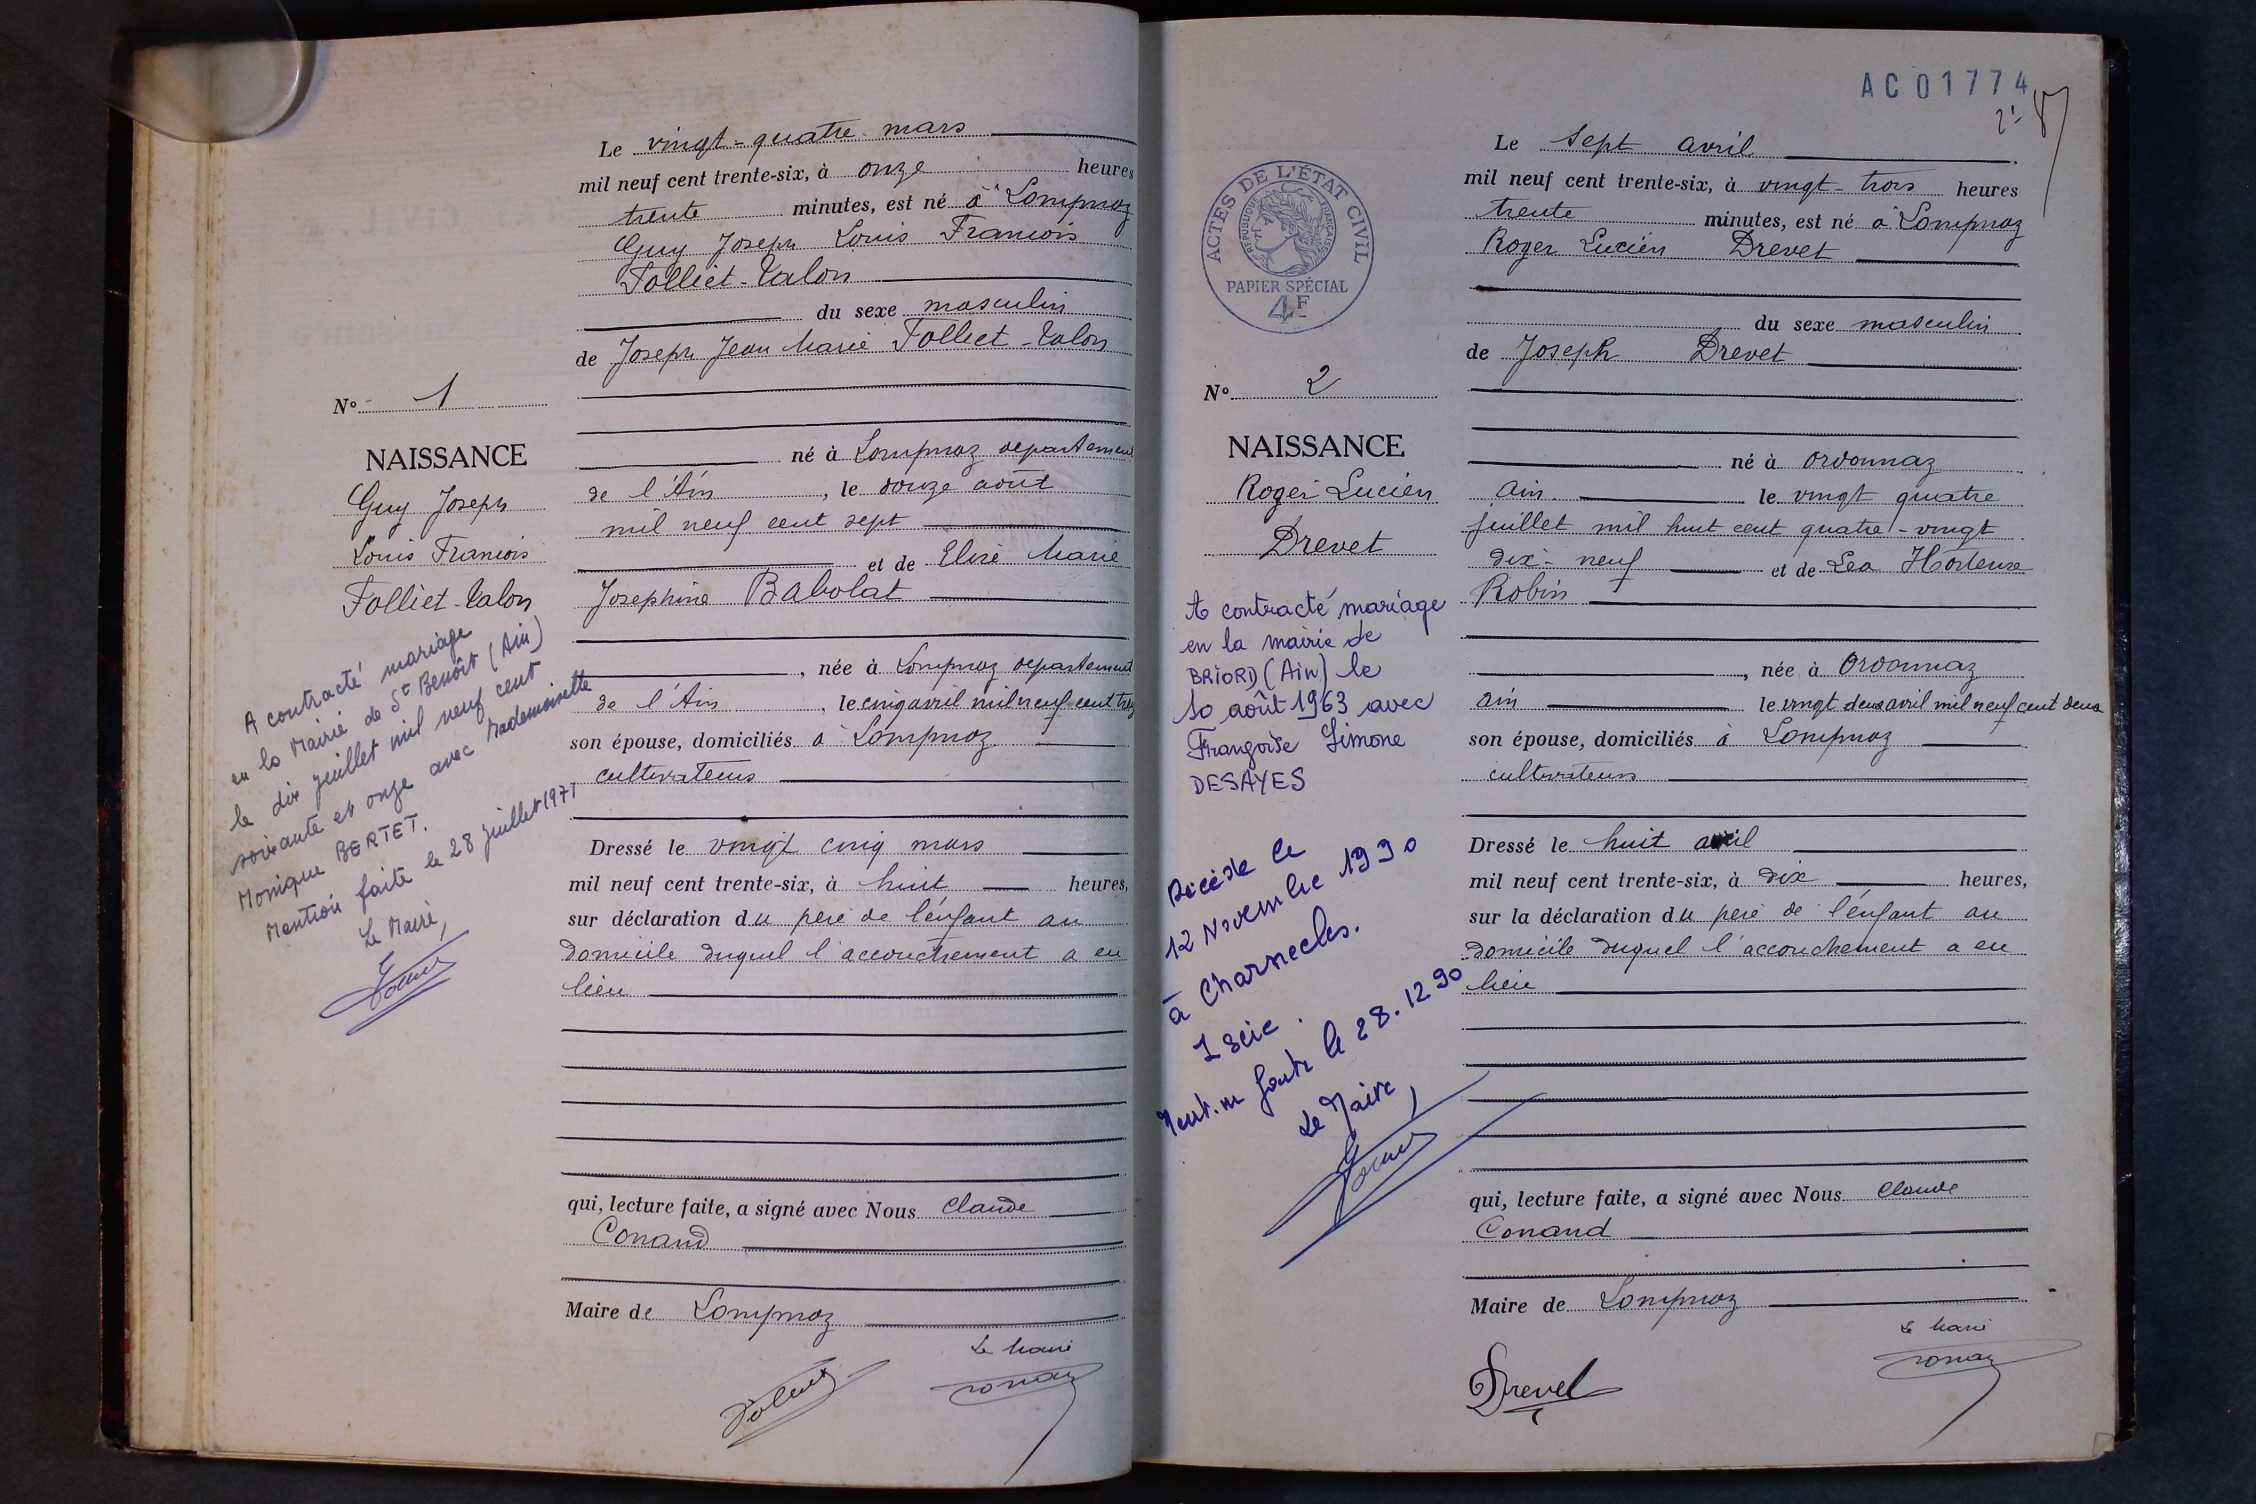 Le vingt-quatre mars
mil neuf cent trente-six, à onze heures
trente minutes, est né à Lompnaz
Guy Joseph Louis Francois
Folliet-Talon
du sexe masculin
de Joseph Jean Marie Folliet-Talon
N° 1
NAISSANCE
Guy Joseph
Louis Francois
Folliet-Talon
né à Lompnaz departement
de l'Ain, le douze août
mil neuf cent sept
et de Elise Marie
Josephine Babolat
, née à Lompnaz departement
de l'Ain, le cinq avril mil neuf cent
son épouse, domiciliés à Lompnaz
cultivateurs
Dressé le vingt cinq mars
mil neuf cent trente-six, à huit heures,
sur déclaration du père de l'enfant au
domicile duquel l'accouchement a eu
lieu
qui, lecture faite, a signé avec Nous Claude
Conand
Maire de Lompnaz
Le Maire
A contracté mariage
en la Mairie de St Benoît (Ain)
le dix juillet mil neuf cent
soixante et onze avec Mademoiselle
Monique BERTET.
Mention faite le 28 juillet 1971
Le Maire,
AC01774
Le Sept avril
mil neuf cent trente-six, à vingt-trois heures
trente minutes, est né à Lompnaz
Roger Lucien Drevet
du sexe masculin
de Joseph Drevet
ACTES DE L'ÉTAT CIVIL
RÉPUBLIQUE FRANÇAISE
PAPIER SPÉCIAL
4F
N° 2
NAISSANCE
Roger Lucien
Drevet
né à Ordonnaz
Ain le vingt quatre
juillet mil huit cent quatre-vingt
dix-neuf et de Lea Hortense
Robin
, née à Ordonnaz
Ain le vingt deux avril mil neuf cent deux
son épouse, domiciliés à Lompnaz
cultivateurs
Dressé le huit avril
mil neuf cent trente-six, à dix heures,
sur la déclaration du père de l'enfant au
domicile duquel l'accouchement a eu
lieu
qui, lecture faite, a signé avec Nous Claude
Conand
Maire de Lompnaz
Le Maire
Drevet
A contracté mariage
en la mairie de
BRIORD (Ain) le
10 août 1963 avec
Françoise Simone
DESAYES
Décédé le
12 Novembre 1990
à Charnecles.
Isère.
Mention faite le 28.12.90
Le Maire,